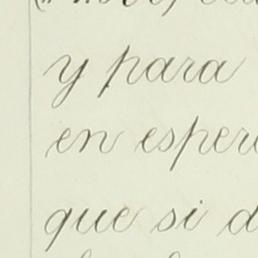 y para
en esper
que si d